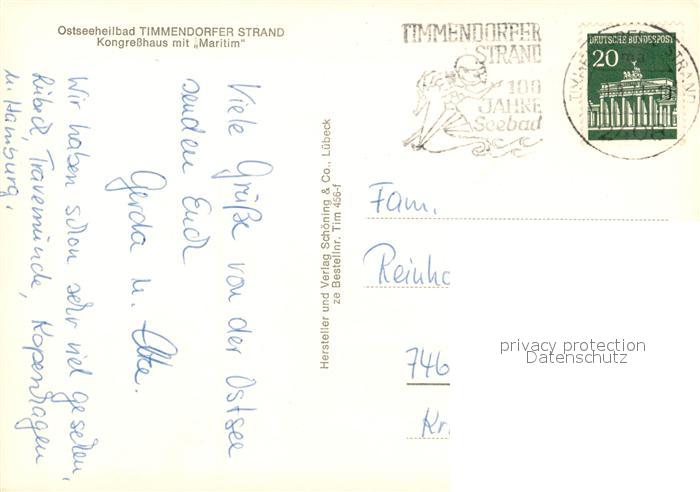 Ostseeheilbad TIMMENDORFER STRAND
Kongreßhaus mit „Maritim"
TIMMENDORFER
STRAND
100
JAHRE
Seebad
DEUTSCHE BUNDESPOST
20
Viele Grüße von der Ostsee
senden Euch
Gerda u.
Wir haben schon sehr viel gesehen,
Lübeck, Travemünde, Kopenhagen
u. Hamburg.
Hersteller und Verlag Schöning & Co., Lübeck
ze Bestellnr. Tim 456-f
Fam.
Reinho
746
Kr
privacy protection
Datenschutz